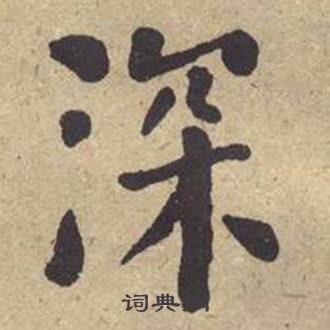 深
词典